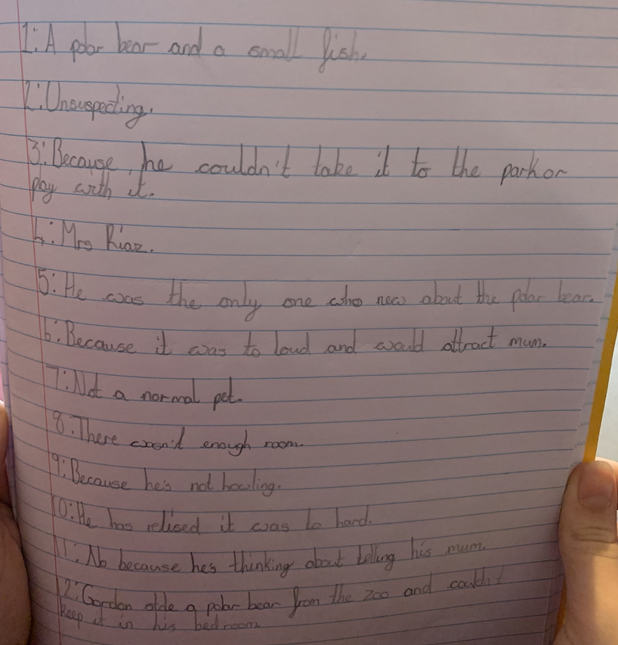 1: A polar bear and a small fish.
2: Unsuspecting.
3: Because, he couldn't take it to the park or
pay with it.
4: Mrs Riaz.
5: He was the only one who new about the polar bear.
6: Because it was to loud and would attract mum.
7: Not a normal pet.
8: There wasn't enough room.
9: Because he's not howling.
10: He has relised it was to hard.
11: No because hes thinking about telling his mum.
12: Gordon a polar bear from the zoo and couldn't
keep it in his bedroom